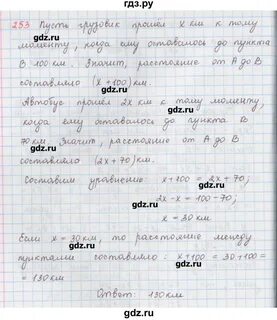 253 Пусть грузовик прошел x км к тому
моменту, когда ему оставалось до пункта
В 100 км. Значит, расстояние от А до В
составляло (x+100) км.
Автобус прошел 2x км к тому моменту,
когда ему оставалось до пункта В
70 км Значит, расстояние от А до В
составляло (2x+70) км.
Составим уравнение: x+100 = 2x+70;
2x-x = 100-70;
x = 30 км
Если x = 30 км, то расстояние между
пунктами составляло: x+100 = 30+100 =
= 130 км
Ответ: 130 км
gdz.ru gdz.ru
gdz.ru gdz.ru
gdz.ru gdz.ru
gdz.ru gdz.ru